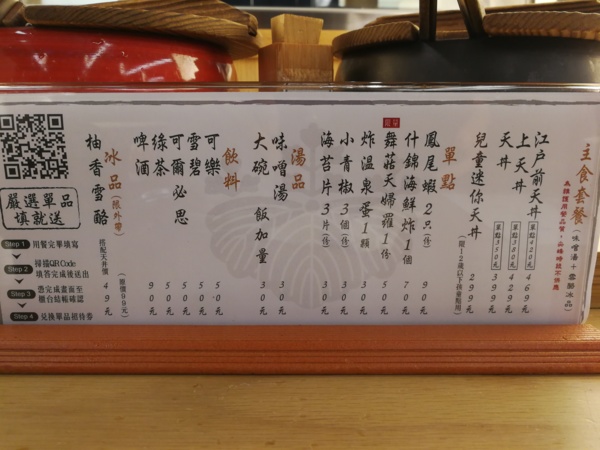 主食套餐
(味噌湯+雪酪冰品)
為維護用餐品質，尖峰時段不供應
江戶前天丼 單點420元 469元
上天丼 單點380元 429元
天丼 單點350元 399元
兒童迷你天丼 299元
(限12歲以下孩童點用)
單點
鳳尾蝦2只(份) 90元
什錦海鮮炸1個 70元
舞菇天婦羅1份 50元
炸溫泉蛋1顆 30元
小青椒3個(份) 30元
海苔片3片(份) 30元
湯品
味噌湯 30元
大碗 飯加量 30元
飲料
可樂 50元
雪碧 50元
可爾必思 50元
綠茶 50元
啤酒 90元
冰品(限外帶)
柚香雪酪 搭配天丼價49元
(原價99元)
嚴選單品
填就送
Step 1 用餐完畢填寫
Step 2 掃描QR Code
填答完成後送出
Step 3 憑完成畫面至
櫃台結帳確認
Step 4 兌換單品招待券